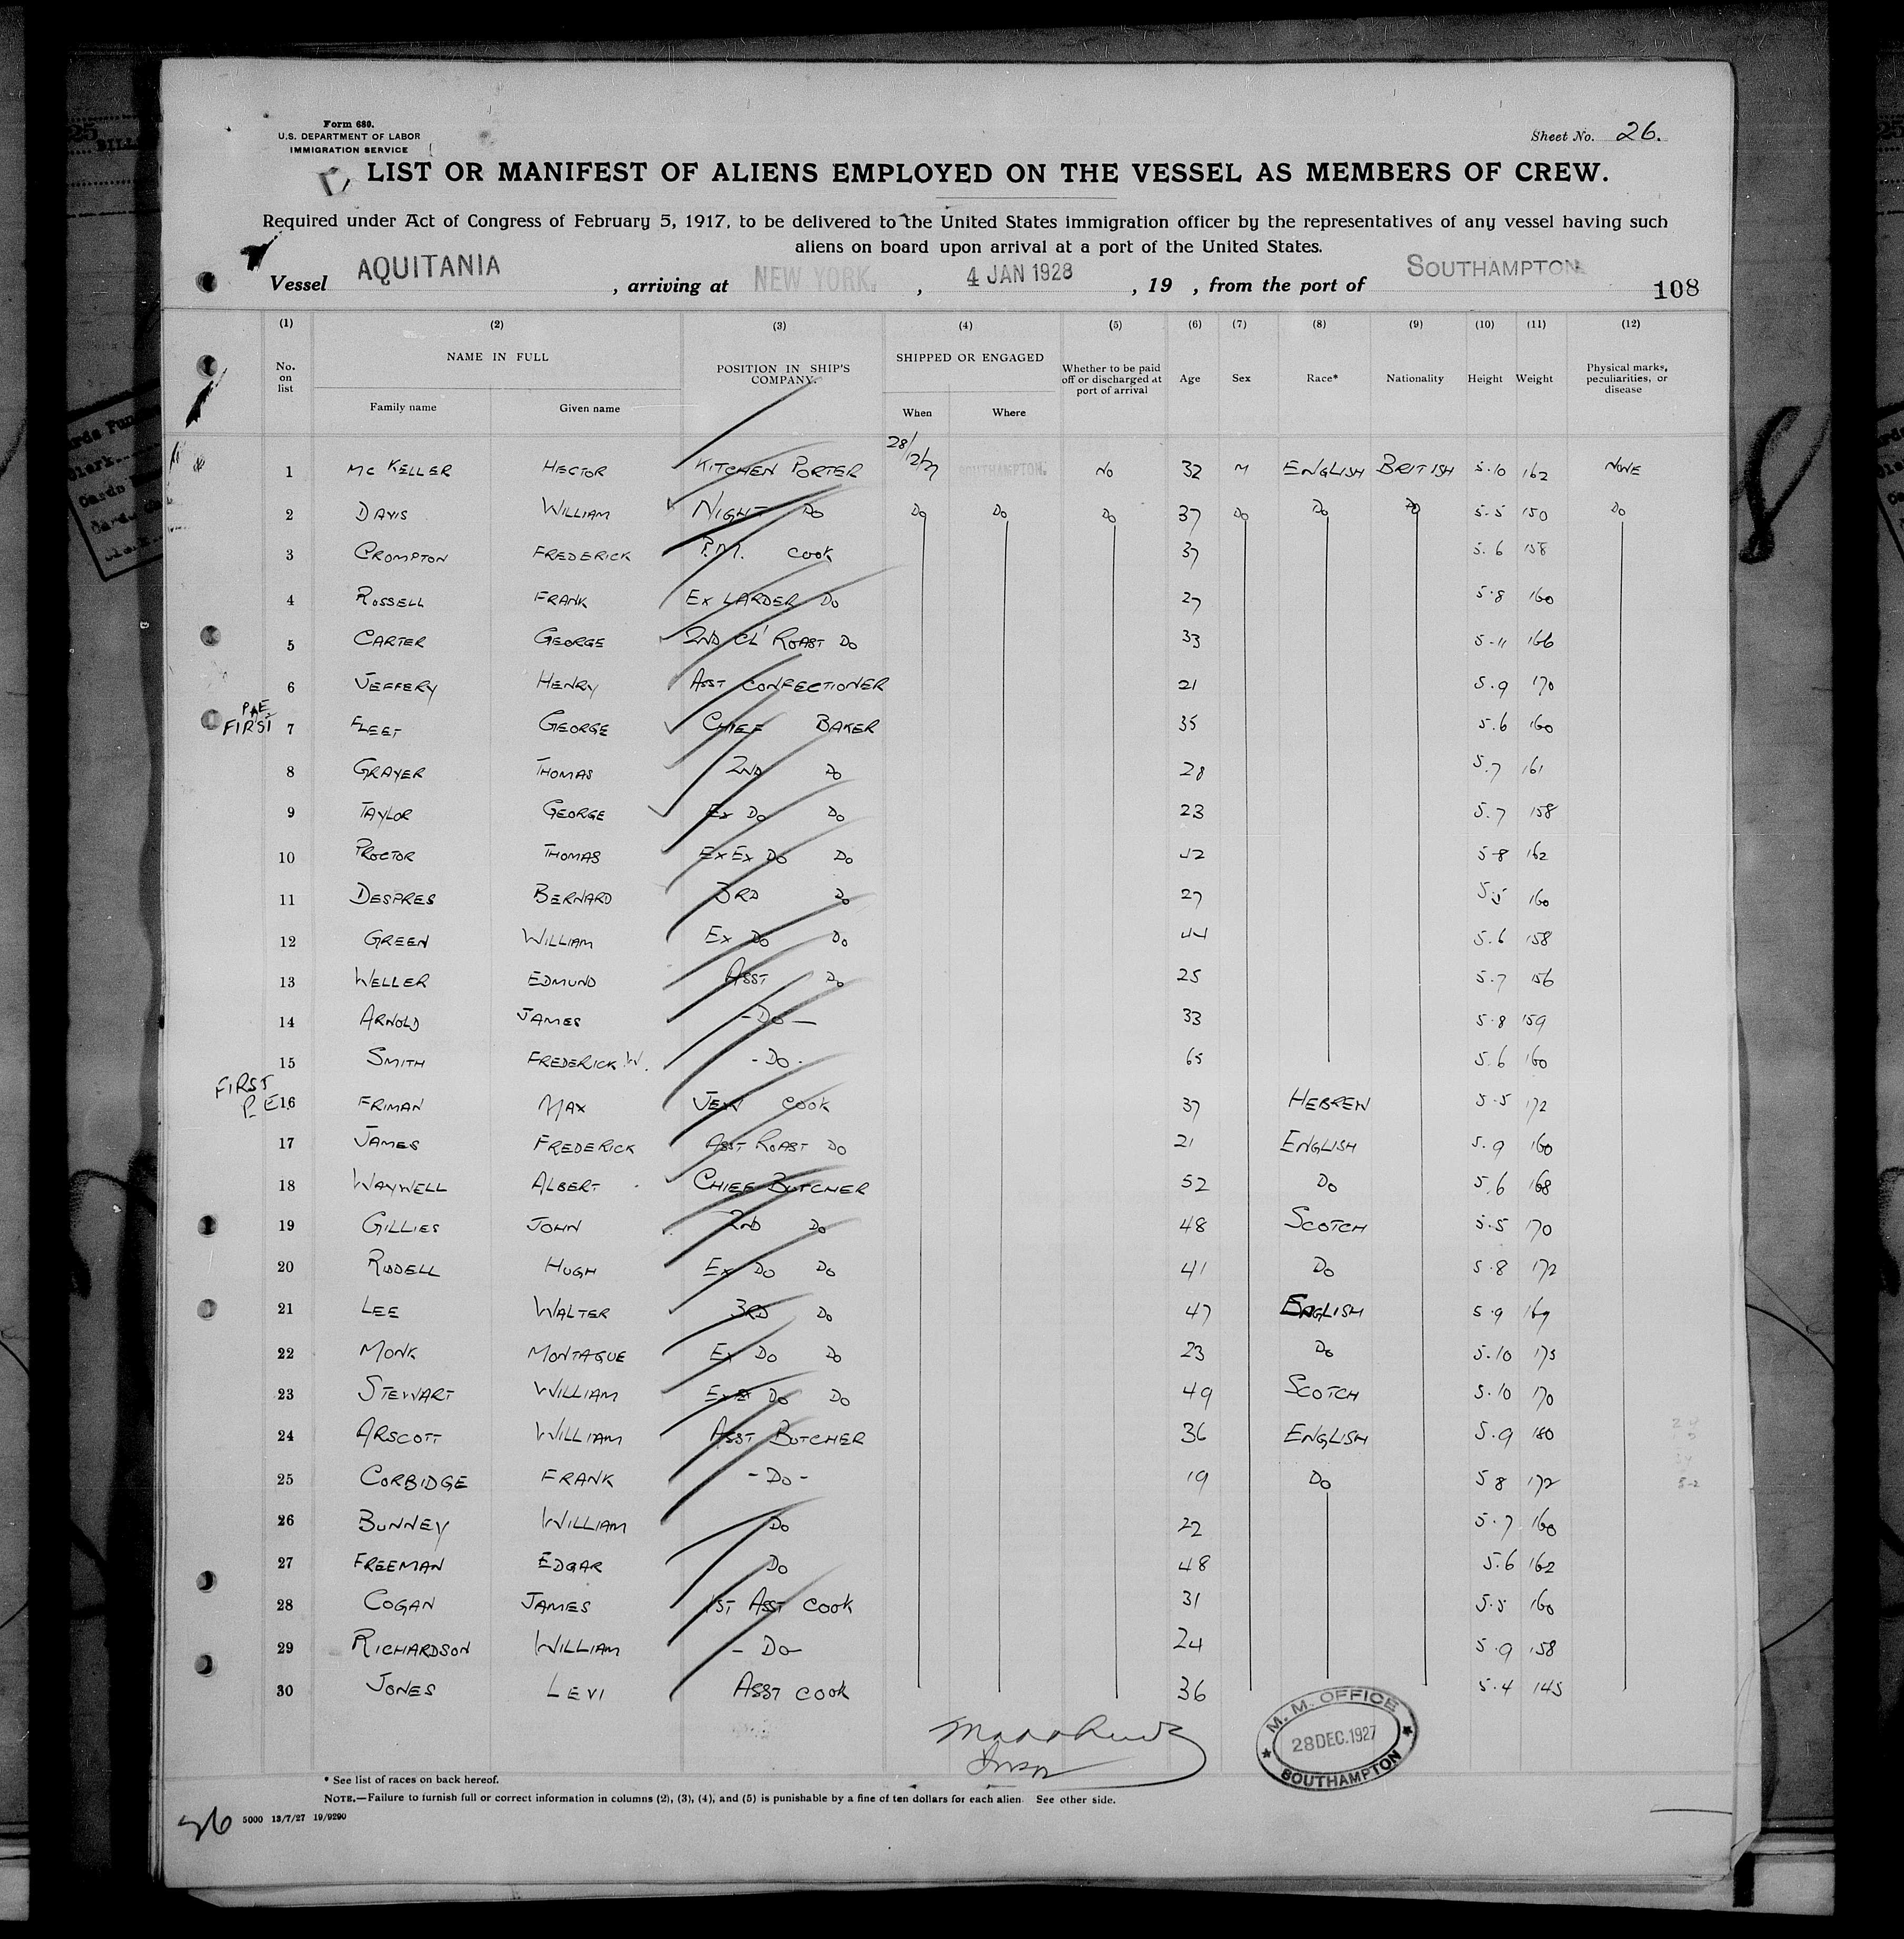 Form 680.
U.S. DEPARTMENT OF LABOR
IMMIGRATION SERVICE
Sheet No. 26.
LIST OR MANIFEST OF ALIENS EMPLOYED ON THE VESSEL AS MEMBERS OF CREW.
Required under Act of Congress of February 5, 1917, to be delivered to the United States immigration officer by the representatives of any vessel having such
aliens on board upon arrival at a port of the United States.
Vessel AQUITANIA, arriving at NEW YORK., 4 JAN 1928, 19 , from the port of SOUTHAMPTON
108
(1) (2) (3) (4) (5) (6) (7) (8) (9) (10) (11) (12)
No. on list NAME IN FULL Family name Given name POSITION IN SHIP'S COMPANY. SHIPPED OR ENGAGED When Where Whether to be paid off or discharged at port of arrival Age Sex Race* Nationality Height Weight Physical marks, peculiarities, or disease
1 Mc KELLER HECTOR KITCHEN PORTER 28/12/27 SOUTHAMPTON. NO 32 M ENGLISH BRITISH 5.10 162 NONE
2 DAVIS WILLIAM NIGHT DO DO DO DO 37 DO DO DO 5.5 150 DO
3 CROMPTON FREDERICK P.M. COOK 37 5.6 158
4 ROSSELL FRANK EX LARDER DO 27 5.8 160
5 CARTER GEORGE 2ND CL' ROAST DO 33 5-11 166
6 JEFFERY HENRY ASST CONFECTIONER 21 5.9 170
P.E
FIRST 7 FLEET GEORGE CHIEF BAKER 35 5.6 160
8 GRAYER THOMAS 2ND DO 28 5.7 161
9 TAYLOR GEORGE EX DO DO 23 5.7 158
10 PROCTOR THOMAS EX EX DO DO 42 5-8 162
11 DESPRES BERNARD 3RD DO 27 5.5 160
12 GREEN WILLIAM EX DO DO 44 5.6 158
13 WELLER EDMUND ASST DO 25 5.7 156
14 ARNOLD JAMES -DO- 33 5.8 159
15 SMITH FREDERICK W. -DO- 65 5.6 160
FIRST
P.E 16 FRIMAN MAX JEW COOK 37 HEBREW 5.5 172
17 JAMES FREDERICK ASST ROAST DO 21 ENGLISH 5.9 160
18 WAYWELL ALBERT CHIEF BUTCHER 52 DO 5.6 168
19 GILLIES JOHN 2ND DO 48 SCOTCH 5.5 170
20 RIDDELL HUGH EX DO DO 41 DO 5.8 172
21 LEE WALTER 3RD DO 47 ENGLISH 5.9 169
22 MONK MONTAGUE EX DO DO 23 DO 5.10 175
23 STEWART WILLIAM EX EX DO DO 49 SCOTCH 5.10 170
24 ARSCOTT WILLIAM ASST BUTCHER 36 ENGLISH 5.9 180
25 CORBIDGE FRANK -DO- 19 DO 5 8 172
26 BUNNEY WILLIAM DO 22 5.7 160
27 FREEMAN EDGAR DO 48 5.6 162
28 COGAN JAMES 1ST ASST COOK 31 5.5 160
29 RICHARDSON WILLIAM -DO- 24 5.9 158
30 JONES LEVI ASST COOK 36 5.4 145
M. M. OFFICE
28 DEC. 1927
SOUTHAMPTON
* See list of races on back hereof.
NOTE.—Failure to furnish full or correct information in columns (2), (3), (4), and (5) is punishable by a fine of ten dollars for each alien. See other side.
26 5000 13/7/27 19/9290